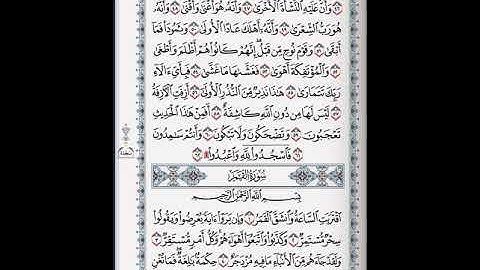 ٤٦ وَأَنَّ عَلَيْهِ النَّشْأَةَ الْأُخْرَىٰ ٤٧ وَأَنَّهُ هُوَ أَغْنَىٰ وَأَقْنَىٰ ٤٨ وَأَنَّهُ
هُوَ رَبُّ الشِّعْرَىٰ ٤٩ وَأَنَّهُ أَهْلَكَ عَادًا الْأُولَىٰ ٥٠ وَثَمُودَ فَمَا
أَبْقَىٰ ٥١ وَقَوْمَ نُوحٍ مِّن قَبْلُ إِنَّهُمْ كَانُوا هُمْ أَظْلَمَ وَأَطْغَىٰ
٥٢ وَالْمُؤْتَفِكَةَ أَهْوَىٰ ٥٣ فَغَشَّاهَا مَا غَشَّىٰ ٥٤ فَبِأَيِّ آلَاءِ
رَبِّكَ تَتَمَارَىٰ ٥٥ هَٰذَا نَذِيرٌ مِّنَ النُّذُرِ الْأُولَىٰ ٥٦ أَزِفَتِ الْآزِفَةُ
٥٧ لَيْسَ لَهَا مِن دُونِ اللَّهِ كَاشِفَةٌ ٥٨ أَفَمِنْ هَٰذَا الْحَدِيثِ
تَعْجَبُونَ ٥٩ وَتَضْحَكُونَ وَلَا تَبْكُونَ ٦٠ وَأَنتُمْ سَامِدُونَ
٦١ فَاسْجُدُوا لِلَّهِ وَاعْبُدُوا ۩ ٦٢
سُورَةُ الْقَمَرِ
بِسْمِ اللَّهِ الرَّحْمَٰنِ الرَّحِيمِ
اقْتَرَبَتِ السَّاعَةُ وَانشَقَّ الْقَمَرُ ١ وَإِن يَرَوْا آيَةً يُعْرِضُوا وَيَقُولُوا
سِحْرٌ مُّسْتَمِرٌّ ٢ وَكَذَّبُوا وَاتَّبَعُوا أَهْوَاءَهُمْ وَكُلُّ أَمْرٍ مُّسْتَقِرٌّ ٣
وَلَقَدْ جَاءَهُم مِّنَ الْأَنبَاءِ مَا فِيهِ مُزْدَجَرٌ ٤ حِكْمَةٌ بَالِغَةٌ فَمَا تُغْنِ